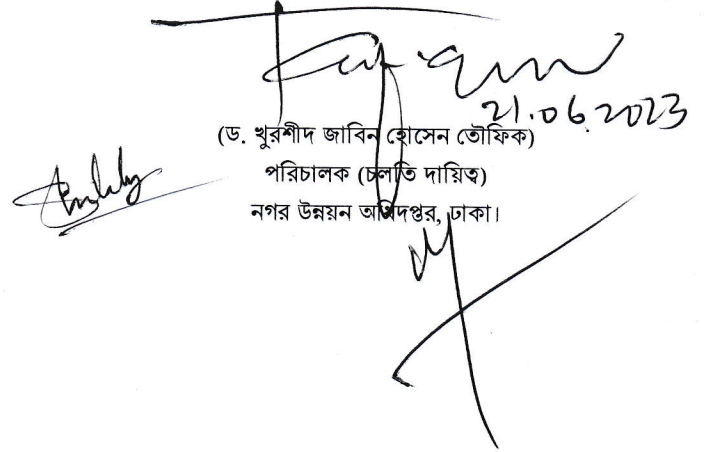 21.06.2023
(ড. খুরশীদ জাবিন হোসেন তৌফিক)
পরিচালক (চলতি দায়িত্ব)
নগর উন্নয়ন অধিদপ্তর, ঢাকা।